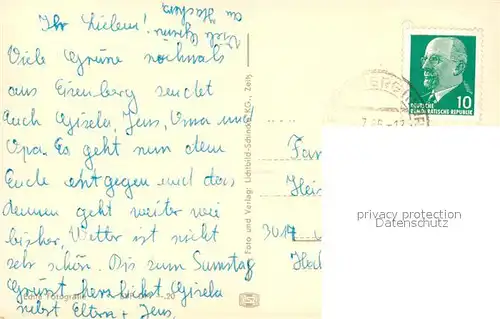 Ihr Lieben!
Viele Grüsse nochmals
aus Eisenberg sendet
Euch Gisela, Jens, Oma und
Opa. Es geht nun dem
Ende entgegen und das
geht weiter wie
bisher, Wetter ist nicht
sehr schön. Bis zum Samstag
Grüsst herzlichst Gisela
nebst Eltern + Jens.
Viele Grüsse
an
Echte Fotografie
Foto und Verlag: Lichtbild-Schincke KG., Zeitz
DEUTSCHE
DEMOKRATISCHE REPUBLIK
10
BERG
Fam
3014
privacy protection
Datenschutz